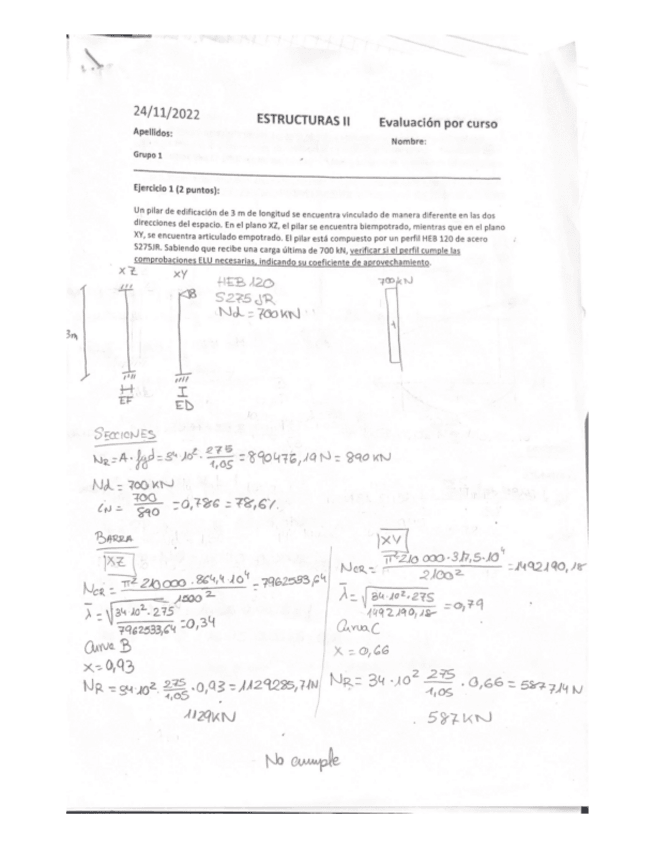 24/11/2022
ESTRUCTURAS II Evaluación por curso
Apellidos: Nombre:
Grupo 1
Ejercicio 1 (2 puntos):
Un pilar de edificación de 3 m de longitud se encuentra vinculado de manera diferente en las dos
direcciones del espacio. En el plano XZ, el pilar se encuentra biempotrado, mientras que en el plano
XY, se encuentra articulado empotrado. El pilar está compuesto por un perfil HEB 120 de acero
S275JR. Sabiendo que recibe una carga última de 700 kN, verificar si el perfil cumple las
comprobaciones ELU necesarias, indicando su coeficiente de aprovechamiento.
XZ XY HEB 120 700 kN
S275 JR
Nd = 700 KN
3m
H I
EF ED
SECCIONES
NR = A · fyd = 34 10² · 275/1,05 = 890476,19 N = 890 KN
Nd = 700 KN
iN = 700/890 = 0,786 = 78,6%
BARRA
XZ
NCR = π² 210 000 · 864,4 10⁴ / 1500² = 7962583,64
λ̄ = √(34 10² · 275 / 7962533,64) = 0,34
Curva B
X = 0,93
NR = 34 · 10² · 275/1,05 · 0,93 = 1129285,71N
1129KN
XY
NCR = π² 210 000 · 317,5 · 10⁴ / 2100² = 1492190,18
λ̄ = √(34 · 10² · 275 / 1492190,18) = 0,79
Curva C
X = 0,66
NR = 34 · 10² 275/1,05 · 0,66 = 587714 N
587 KN
No cumple